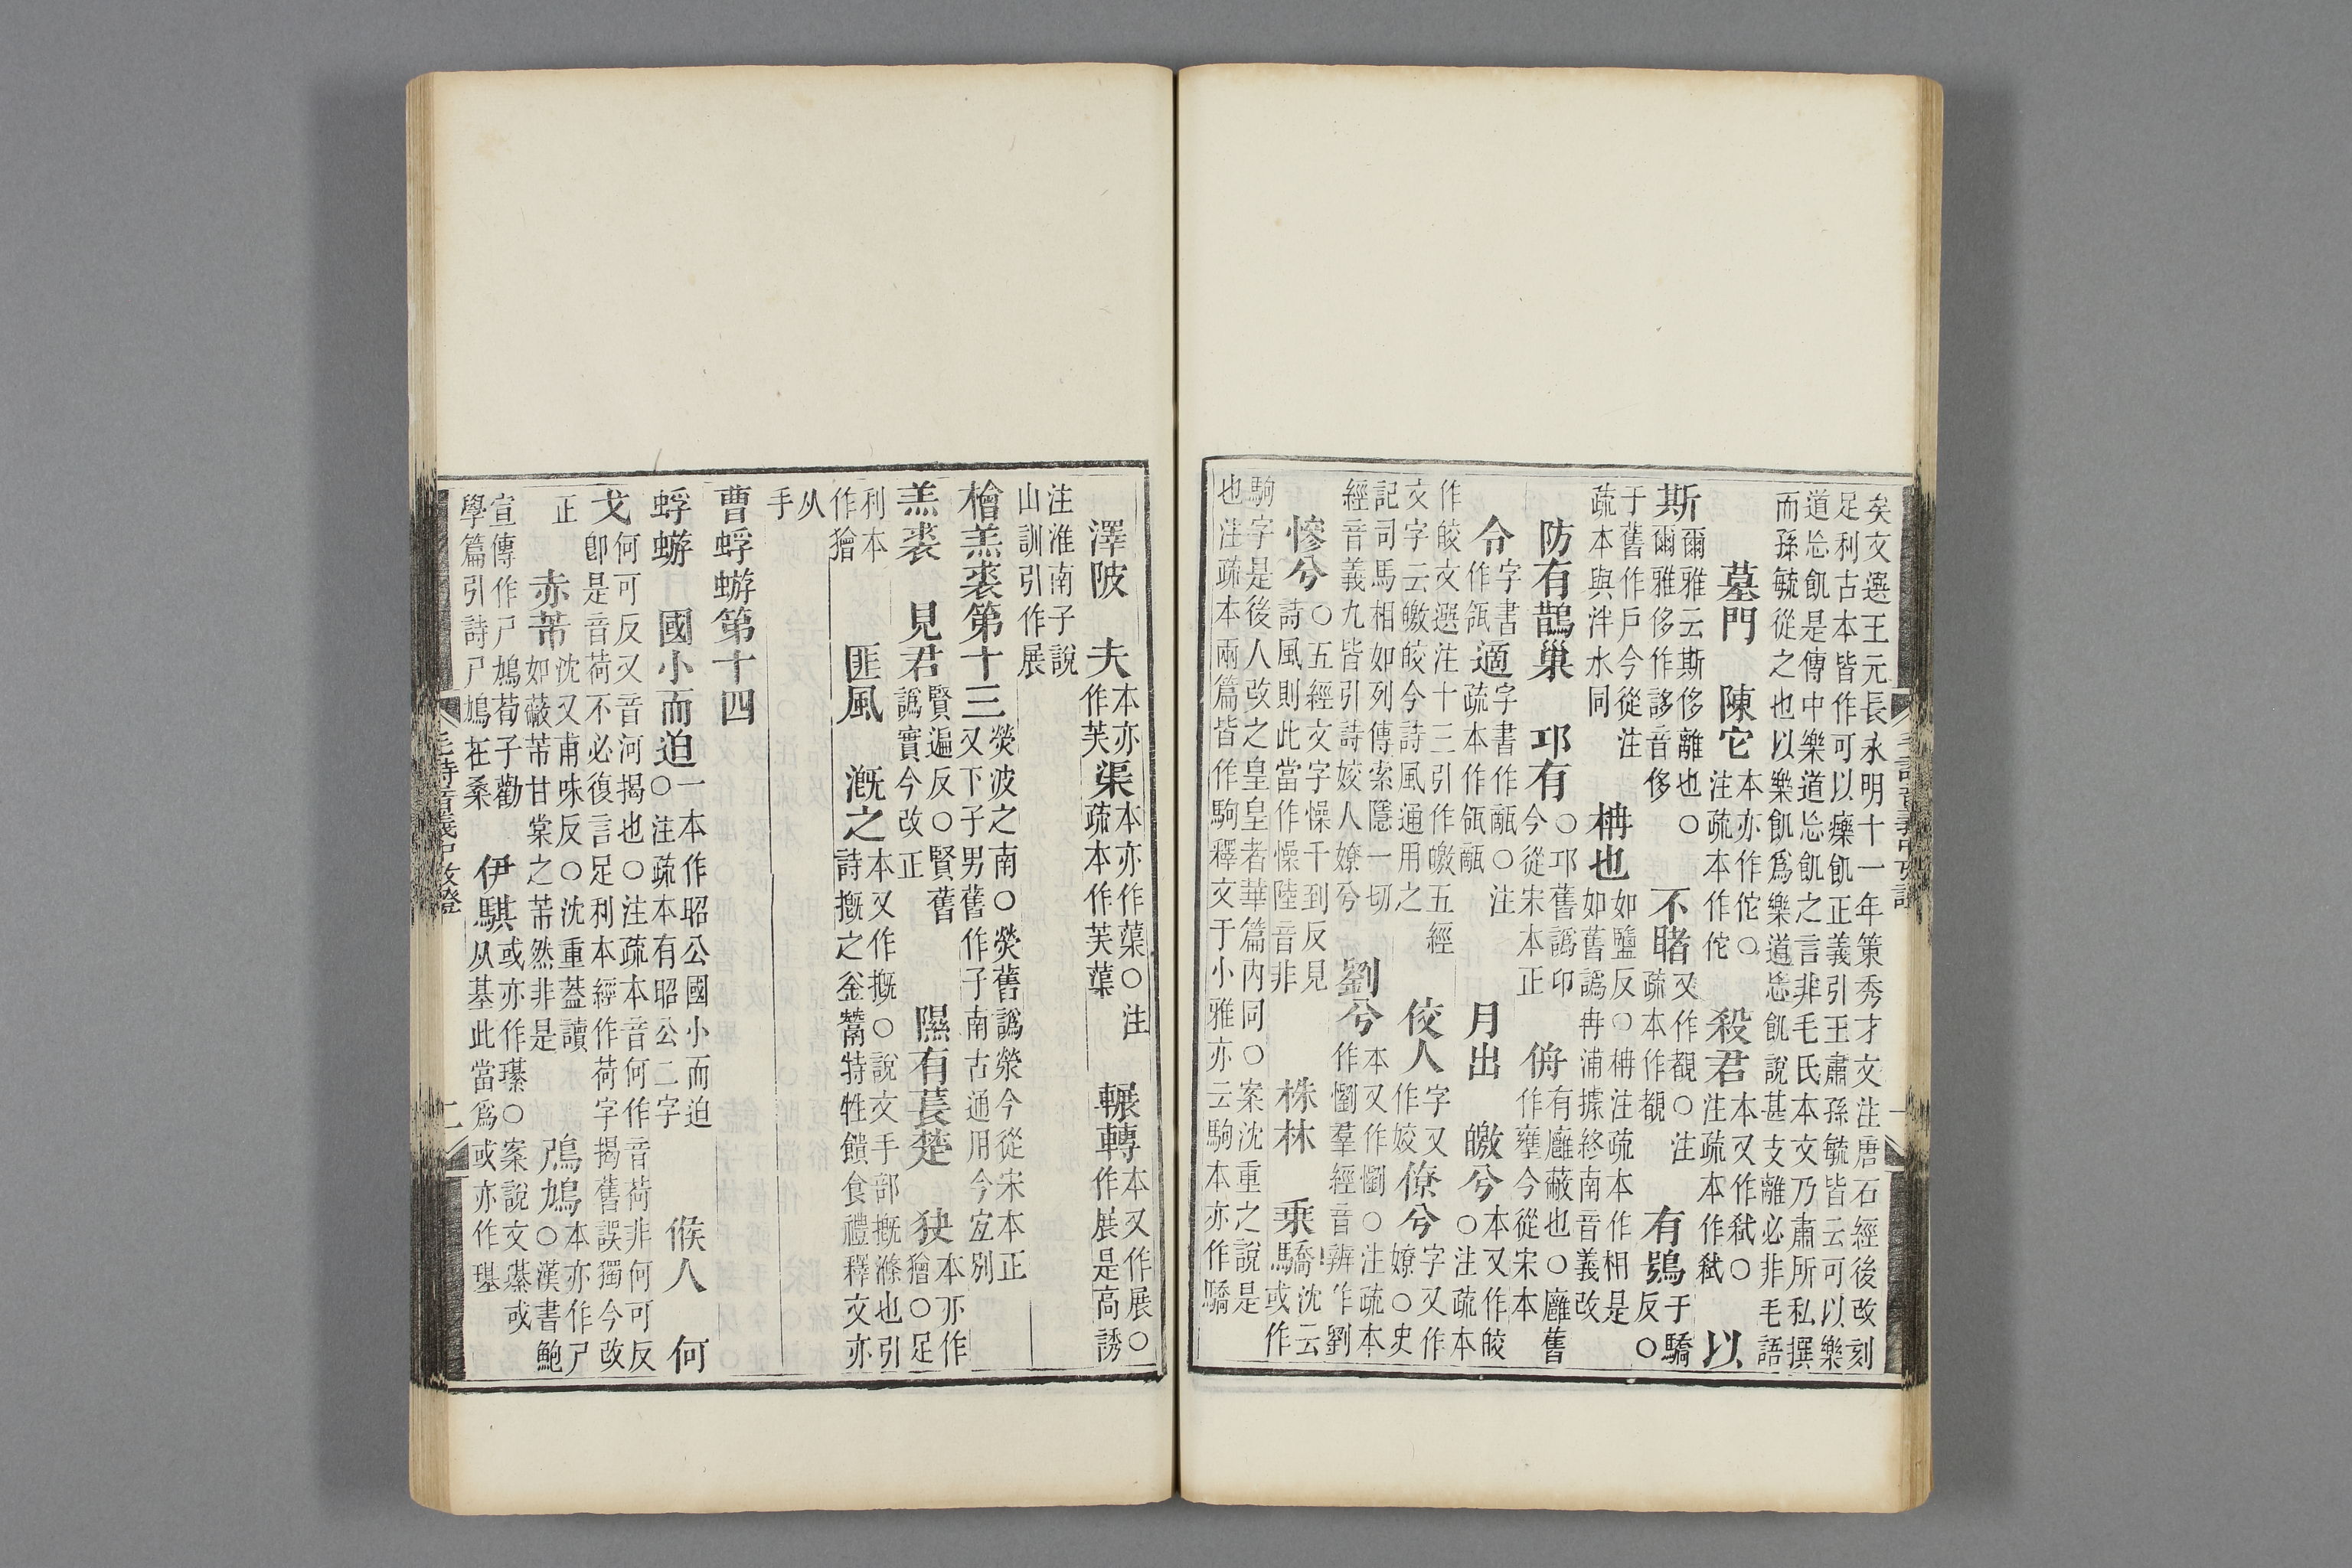 矣文選王元長永明十一年策秀才文注唐石經後改刻足利古本皆作可以𤻲飢正義引王肅孫毓皆云可以樂
道忘飢是傳中樂道忘飢之言非毛氏本文乃肅所私撰而孫毓從之也以樂飢爲樂道忘飢說甚支離必非毛語
墓門 陳它本亦作佗○注疏本作佗 殺君本又作弒○注疏本作弒 以
斯爾雅云斯侈離也○爾雅侈作誃音侈 不睹又作覩○注疏本作覩 有鴞于驕反○
于舊作戶今從注疏本與泮水同 枏也如鹽反○枏注疏本作相是如舊譌冉浦據終南音義改
防有鵲巢 邛有○邛舊譌卬今從宋本正 侜有廱蔽也○廱舊作壅今從宋本
令字書作瓴適字書作甋○注疏本作瓴甋 月出 皦兮本又作皎○注疏本
作皎文選注十三引作皦五經文字云皦皎今詩風通用之 佼人字又作姣僚兮字又作嫽○史
記司馬相如列傳索隱一切經音義九皆引詩姣人嫽兮 劉兮本又作懰○注疏本作懰羣經音辨作劉
慘兮○五經文字懆千到反見詩風則此當作懆陸音非 株林 乘驕沈云或作
駒字是後人改之皇皇者華篇内同○案沈重之說是也注疏本兩篇皆作駒釋文于小雅亦云駒本亦作驕
澤陂 夫本亦作芙渠本亦作蕖○注疏本作芙蕖 輾轉本又作展○作展是高誘
注淮南子說山訓引作展
檜羔裘第十三熒波之南○熒舊譌滎今從宋本正又下子男舊作子南古通用今㝎別
羔裘 見君賢遍反○賢舊譌實今改正 隰有萇楚 狡本亦作獪○足
利本作獪 匪風 溉之本又作摡○說文手部摡滌也引詩摡之釜鬵特牲饋食禮釋文亦
从手
曹蜉蝣第十四
蜉蝣 國小而迫一本作昭公國小而迫○注疏本有昭公二字 候人 何
戈何可反又音河揭也○注疏本音何作音荷非何可反卽是音荷不必復言足利本經作荷字揭舊誤獨今改
正 赤芾沈又甫味反○沈重蓋讀如蔽芾甘棠之芾然非是 鳲鳩本亦作尸○漢書鮑
宣傳作尸鳩荀子勸學篇引詩尸鳩在桑 伊騏或亦作璂○案說文綦或从基此當爲或亦作璂
毛詩音義中攷證 二